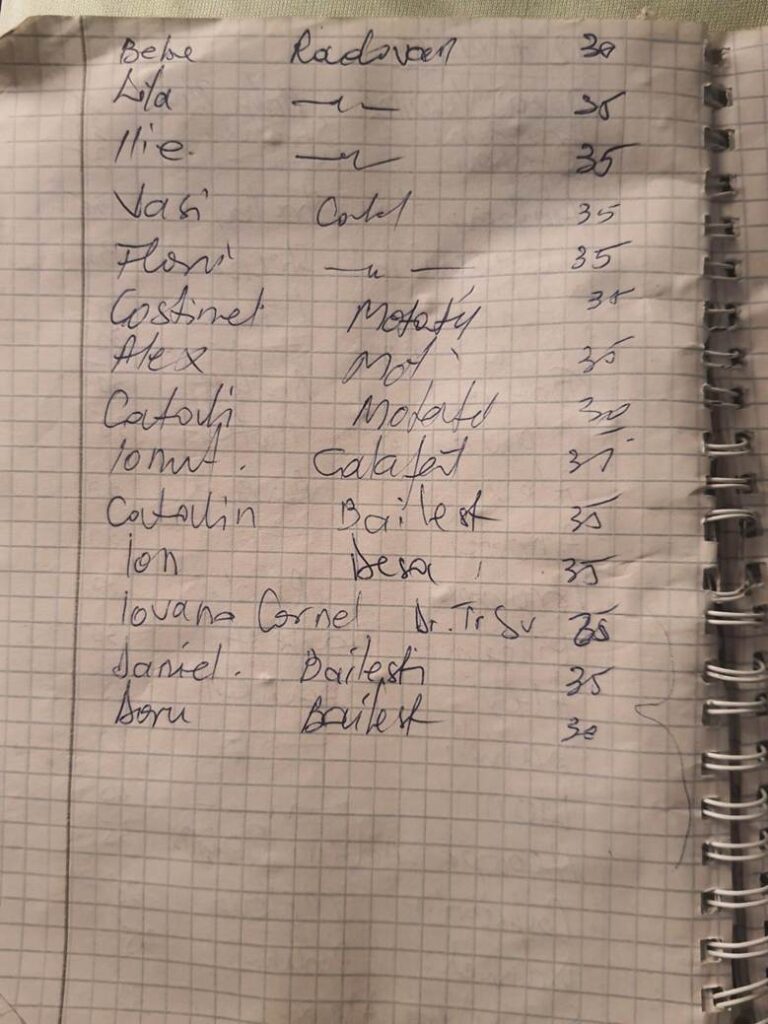 Bebe Radovan 30
Lila —〃— 35
Ilie. —〃— 35
Vasi 35
Flori —〃— 35
Costinel Motatii 35
Alex Mot 35
Catali Motatii 30
Ionut. Calafat 35
Catalin Bailest 35
Ion Desa 35
Iovano Cornel Dr. Tr Sv 35
Daniel. Bailesti 35
Doru Bailest 30